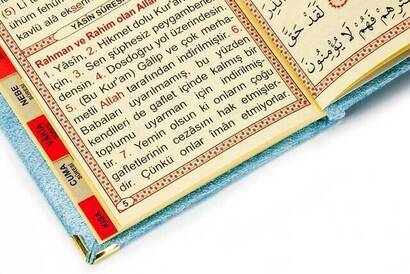 (5) Lî
kavlü alâ ekse
YÂSÎN SÛRES
Rahman ve Rahîm olan Alla
1. Yâsin. 2. Hikmet dolu Kur'an
3. Sen şüphesiz peygamberler-
densin. 4. Dosdoğru yol üzerindesin.
5. (Bu Kur'an) Gâlip ve çok merha-
metli Allah tarafından indirilmiştir. 6.
Babaları uyarılmamış, bu yüzden
kendileri de gaflet içinde kalmış bir
toplumu uyarman için indirilmiş-
tir. 7. Yemin olsun ki onların çoğu
gafletlerinin cezasını hak etmişler-
dir. Çünkü onlar îmân etmiyorlar.
5
NEBE
SÛRESİ
VAKIA
CUMA
SÛRESİ
KISA
لَقَدْ حَقَّ
فَهُمْ لَا يُؤْمِنُونَ